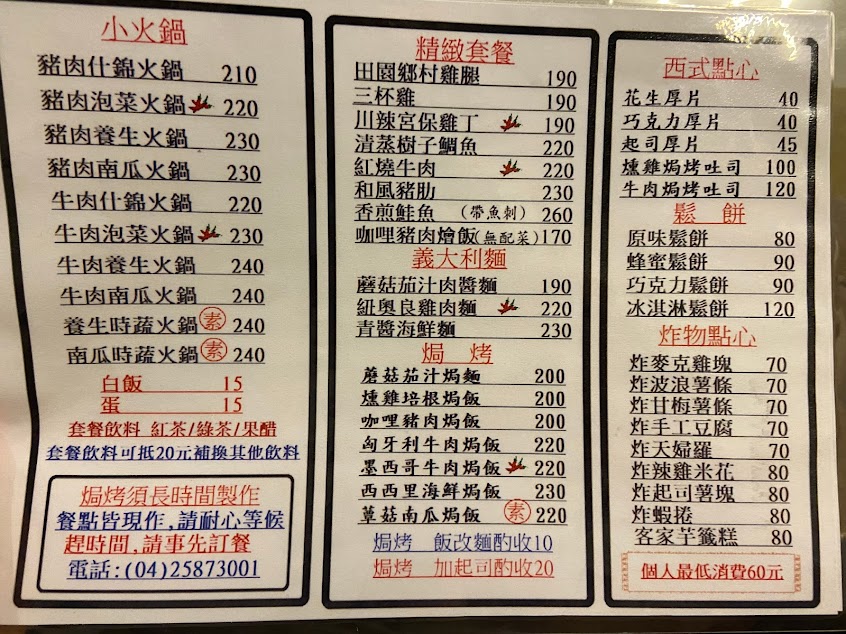 小火鍋
豬肉什錦火鍋 210
豬肉泡菜火鍋 220
豬肉養生火鍋 230
豬肉南瓜火鍋 230
牛肉什錦火鍋 220
牛肉泡菜火鍋 230
牛肉養生火鍋 240
牛肉南瓜火鍋 240
養生時蔬火鍋 素 240
南瓜時蔬火鍋 素 240
白飯 15
蛋 15
套餐飲料 紅茶/綠茶/果醋
套餐飲料可抵20元補換其他飲料
焗烤須長時間製作
餐點皆現作,請耐心等候
趕時間,請事先訂餐
電話:(04)25873001
精緻套餐
田園鄉村雞腿 190
三杯雞 190
川辣宮保雞丁 190
清蒸樹子鯛魚 220
紅燒牛肉 220
和風豬肋 230
香煎鮭魚 (帶魚刺) 260
咖哩豬肉燴飯(無配菜)170
義大利麵
蘑菇茄汁肉醬麵 190
紐奧良雞肉麵 220
青醬海鮮麵 230
焗 烤
蘑菇茄汁焗麵 200
燻雞培根焗飯 200
咖哩豬肉焗飯 200
匈牙利牛肉焗飯 220
墨西哥牛肉焗飯 220
西西里海鮮焗飯 230
蕈菇南瓜焗飯 素 220
焗烤 飯改麵酌收10
焗烤 加起司酌收20
西式點心
花生厚片 40
巧克力厚片 40
起司厚片 45
燻雞焗烤吐司 100
牛肉焗烤吐司 120
鬆 餅
原味鬆餅 80
蜂蜜鬆餅 90
巧克力鬆餅 90
冰淇淋鬆餅 120
炸物點心
炸麥克雞塊 70
炸波浪薯條 70
炸甘梅薯條 70
炸手工豆腐 70
炸天婦羅 70
炸辣雞米花 80
炸起司薯塊 80
炸蝦捲 80
客家芋籤糕 80
個人最低消費60元